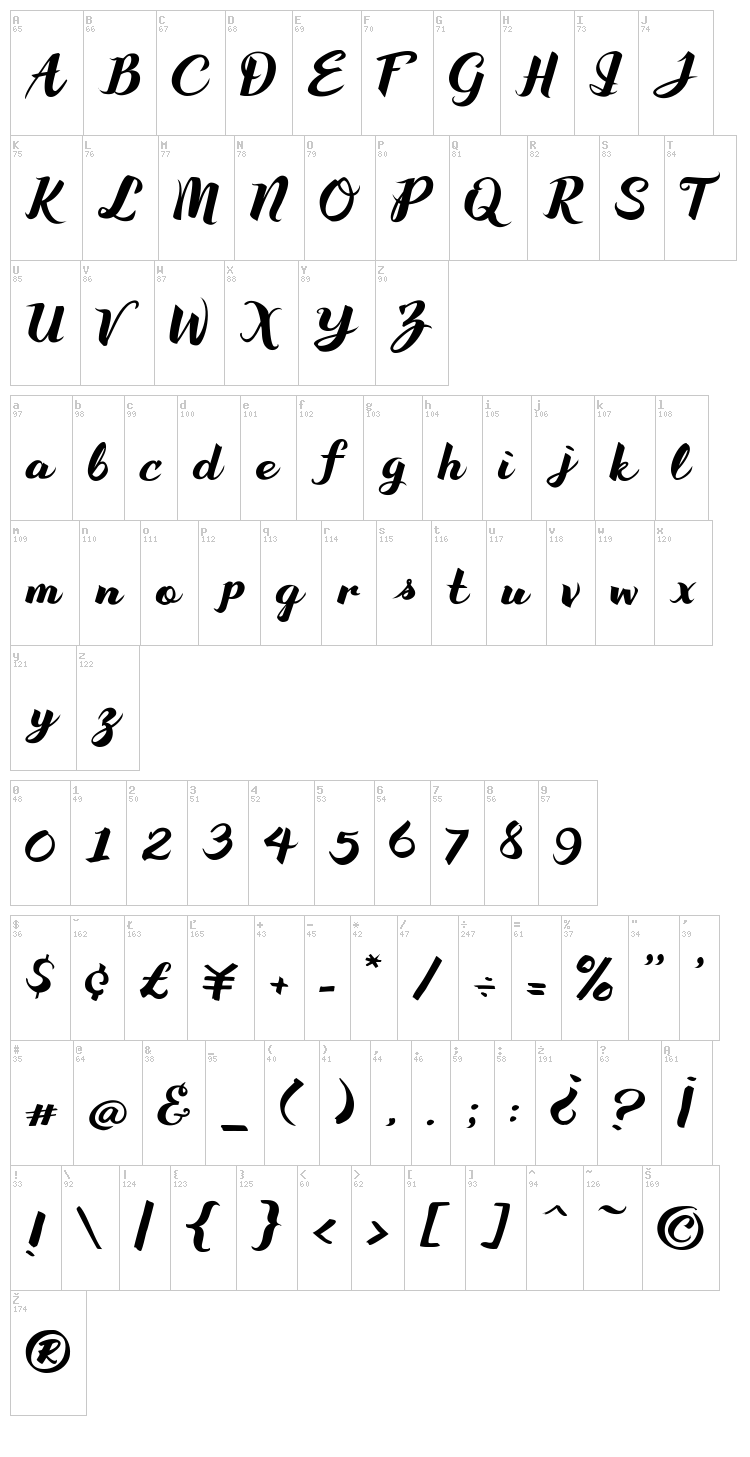 A B C D E F G H I J
65 66 67 68 69 70 71 72 73 74
A B C D E F G H I J
K L M N O P Q R S T
75 76 77 78 79 80 81 82 83 84
K L M N O P Q R S T
U V W X Y Z
85 86 87 88 89 90
U V W X Y Z
a b c d e f g h i j k l
97 98 99 100 101 102 103 104 105 106 107 108
a b c d e f g h i j k l
m n o p q r s t u v w x
109 110 111 112 113 114 115 116 117 118 119 120
m n o p q r s t u v w x
y z
121 122
y z
0 1 2 3 4 5 6 7 8 9
48 49 50 51 52 53 54 55 56 57
0 1 2 3 4 5 6 7 8 9
$ ˘ Ł Ľ + - * / ÷ = % " '
36 162 163 165 43 45 42 47 247 61 37 34 39
$ ¢ £ ¥ + - * / ÷ = % " '
# @ & _ ( ) , . ; : ż ? Ą
35 64 38 95 40 41 44 46 59 58 191 63 161
# @ & _ ( ) , . ; : ¿ ? ¡
! \ | { } < > [ ] ^ ~ Š
33 92 124 123 125 60 62 91 93 94 126 169
! \ | { } < > [ ] ^ ~ ©
Ž
174
®